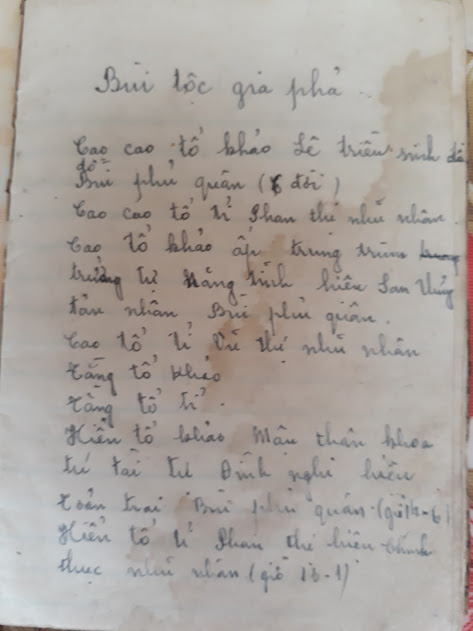 Bùi tộc gia phả
Cao cao tổ khảo Lê triều sinh đồ
đồ
Bùi phủ quân (6 đời)
Cao cao tổ tỉ Phan thị nhũ nhân
Cao tổ khảo ấp trung trùm
trưởng tự Đăng trình hiệu
tản nhân Bùi phủ quân.
Cao tổ tỉ Vũ thị nhũ nhân
Tằng tổ khảo
Tằng tổ tỉ
Hiển tổ khảo Mậu thân khoa
tú tài tự Đình nghi hiệu
trai Bùi phủ quân
Hiển tổ tỉ Phan thị hiệu Chính
thục nhũ nhân (giỗ 13-1)